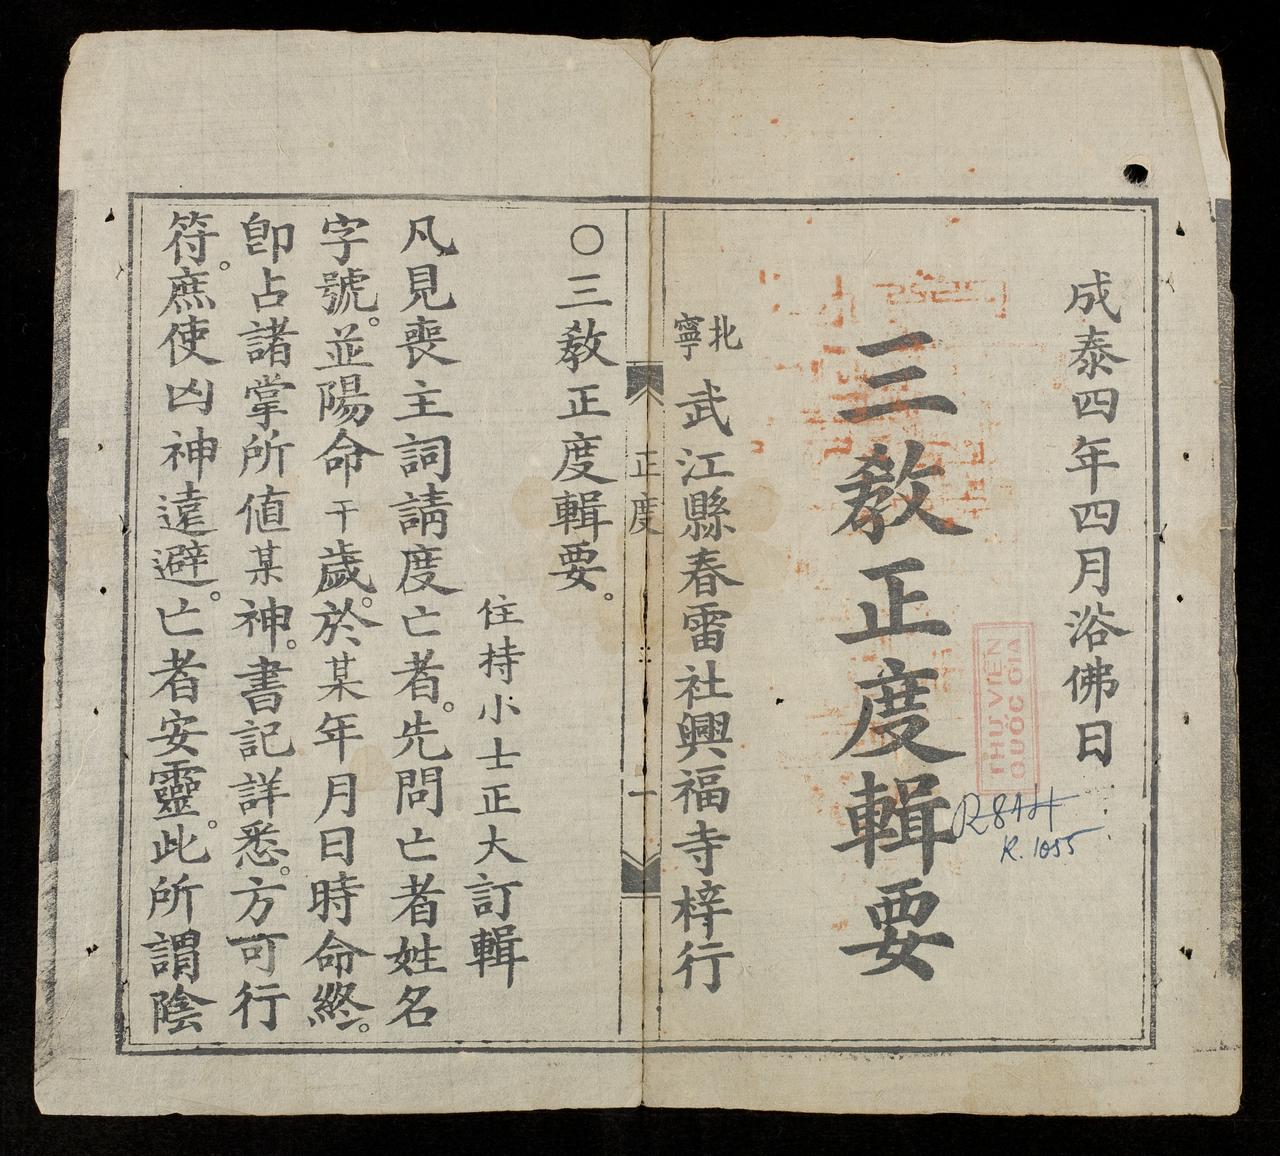 成泰四年四月浴佛日
三教正度輯要
北寧武江縣春雷社興福寺梓行
THƯ VIỆN
QUỐC GIA
R.1055
正度
一
○三教正度輯要。
住持小士正大訂輯
凡見喪主詞請度亡者。先問亡者姓名
字號。並陽命干歲。於某年月日時命終。
卽占諸掌所値某神。書記詳悉。方可行
符。庶使凶神遠避。亡者安靈。此所謂陰